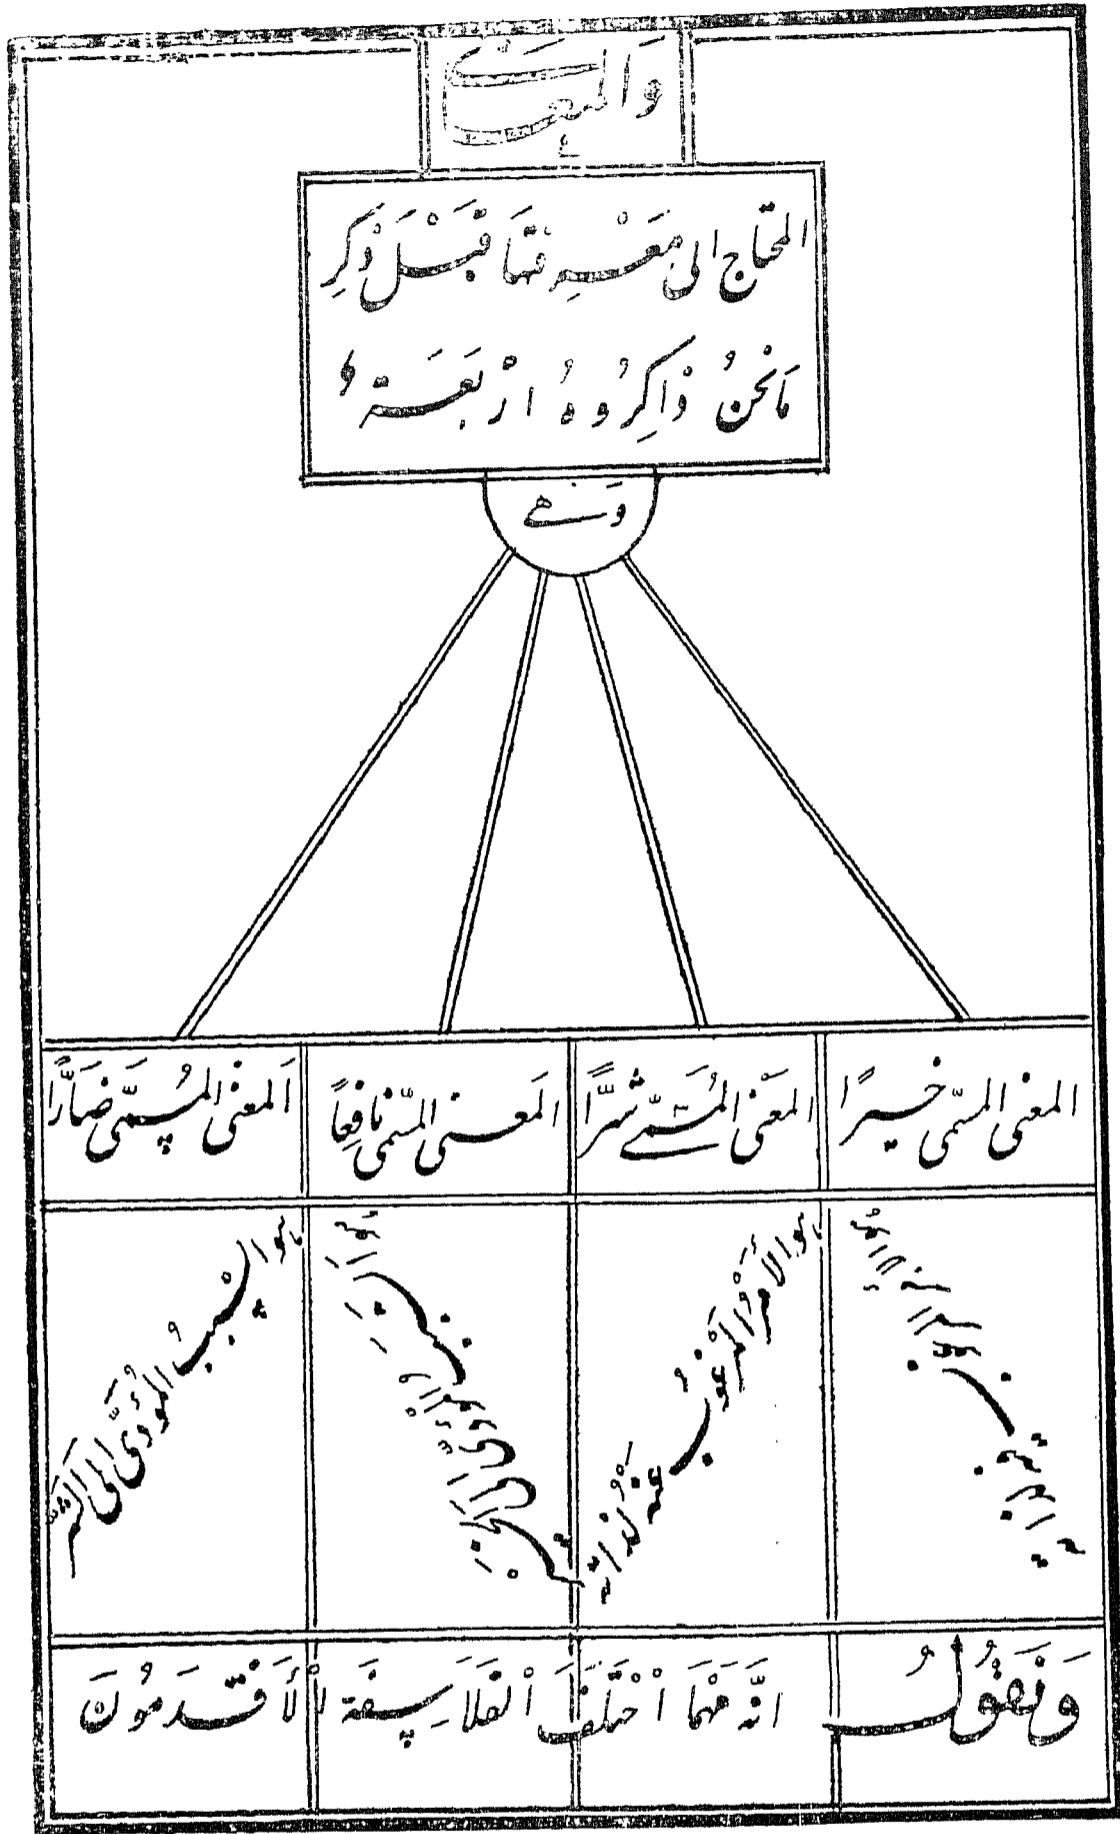 وَالمَعَانِي
المحتاج الى مَعْرِفتهَا قبَلَ ذكرِ
مَانحنُ ذَاكِرُوهُ ارْبعَة
وَهي
المعنى المسّمى خيرًا
المَعنى المُسَمّى شرًّا
المَعنى المسّمى نافِعًا
اَلمعنى المُسمَّى ضَارًّا
هو الأمرُ المَرْغوُبُ عنهُ لذاته
هو السّببُ المُؤَدّى الى الشَرّ
وَنَقوُلُ انَّه مَهْمَا اخْتَلَفَ الفَلاَسِفَة الأَقْدَموُنَ